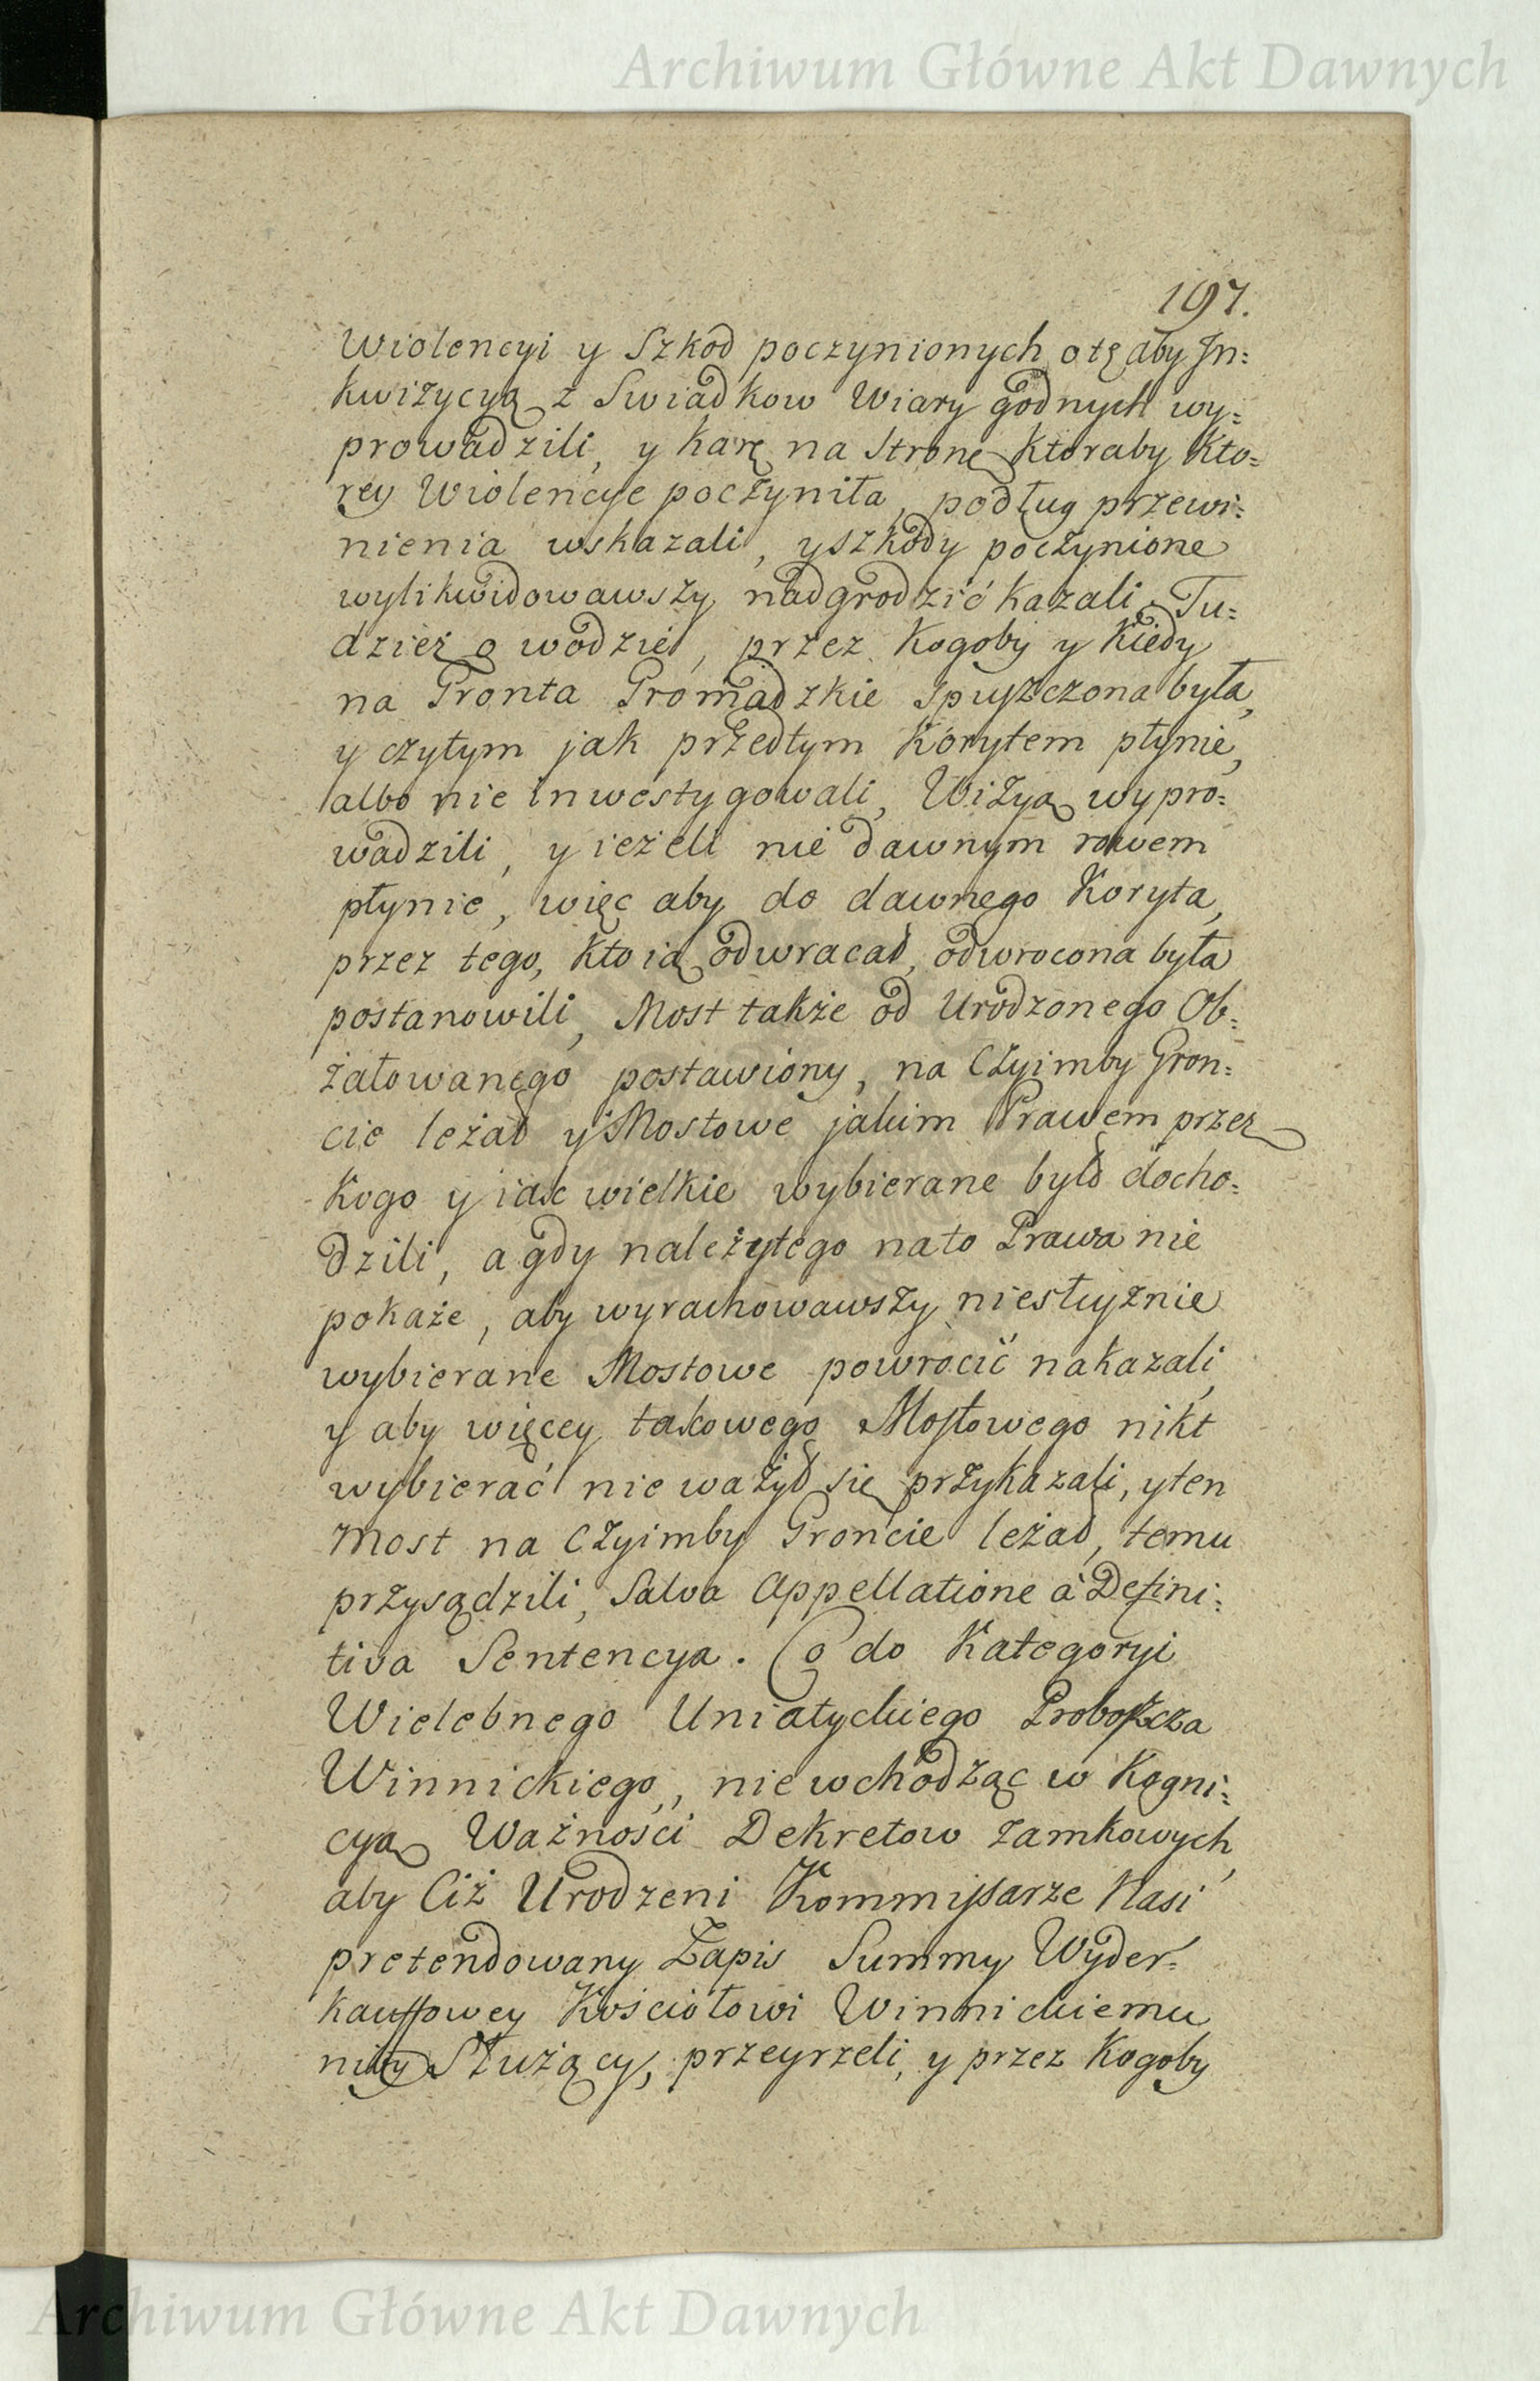 Archiwum Główne Akt Dawnych
197.
Wiolencyi y Szkod poczynionych o tę aby In=
kwizycyą z Swiadkow Wiary godnych wy=
prowadzili, y karę na Stronę ktoraby kto=
rey Wiolencye poczyniła, podług przewi=
nienia wskazali, y szkody poczynione
wylikwidowawszy nadgrodzić kazali. Tu=
dzież o wodzie, przez kogoby y kiedy
na Gronta Gromadzkie spuszczona była,
y czy tym jak przedtym Korytem płynie,
albo nie inwestygowali, Wizyą wypro=
wadzili, y ieżeli nie dawnym rowem
płynie, więc aby do dawnego Koryta,
przez tego, kto ią odwracał, odwrocona była
postanowili, Most także od Urodzonego Ob=
żałowanego postawiony, na Czyimby Gron=
cie leżał y Mostowe jakim Prawem przez
Kogo y iak wielkie wybierane było docho=
dzili, a gdy należytego na to Prawa nie
pokaże, aby wyrachowawszy niesłusznie
wybierane Mostowe powrocić nakazali,
y aby więcey takowego Mostowego nikt
wybierać nie ważył się przykazali, y ten
Most na Czyimby Groncie leżał, temu
przysądzili, Salva Appellatione à Defini=
tiva Sentencya. Co do Kategoryi
Wielebnego Uniatyckiego Proboszcza
Winnickiego, nie wchodząc w Kogni=
cyą Ważności Dekretow Zamkowych,
aby Ciż Urodzeni Kommissarze Nasi
pretendowany Zapis Summy Wyder=
kauffowey Kościołowi Winnickiemu
niby Służący, przeyrzeli, y przez Kogoby
Archiwum Główne Akt Dawnych